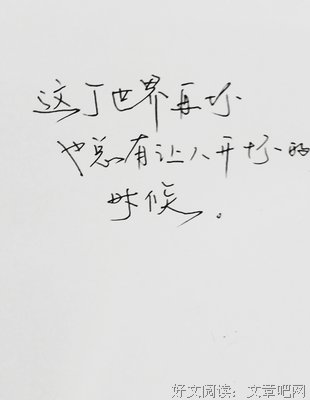 这个世界再坏
也总有让人开怀的
时候。
好文阅读：文章吧网